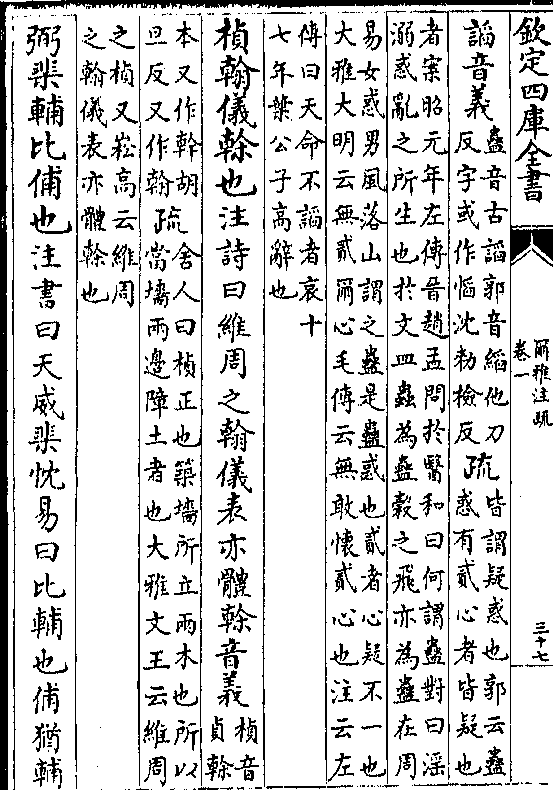 欽定四庫全書
爾雅注疏
卷一
三十七
謟音義
蠱音古謟郭音縚他刀
反字或作慆沈勑檢反
疏
皆謂疑惑也郭云蠱
惑有貳心者皆疑也
者案昭元年左傳晉趙孟問於醫和曰何謂蠱對曰淫
溺惑亂之所生也於文皿蟲為蠱穀之飛亦為蠱在周
易女惑男風落山謂之蠱是蠱惑也貳者心疑不一也
大雅大明云無貳爾心毛傳云無敢懷貳心也注云左
傳曰天命不謟者哀十
七年葉公子高辭也
楨翰儀榦也注詩曰維周之翰儀表亦體榦音義
楨音
貞榦
本又作幹胡
旦反又作翰
疏
舍人曰楨正也築墻所立兩木也所以
當墻兩邊障土者也大雅文王云維周
之楨又崧高云維周
之翰儀表亦體榦也
弼棐輔比俌也注書曰天威棐忱易曰比輔也俌猶輔